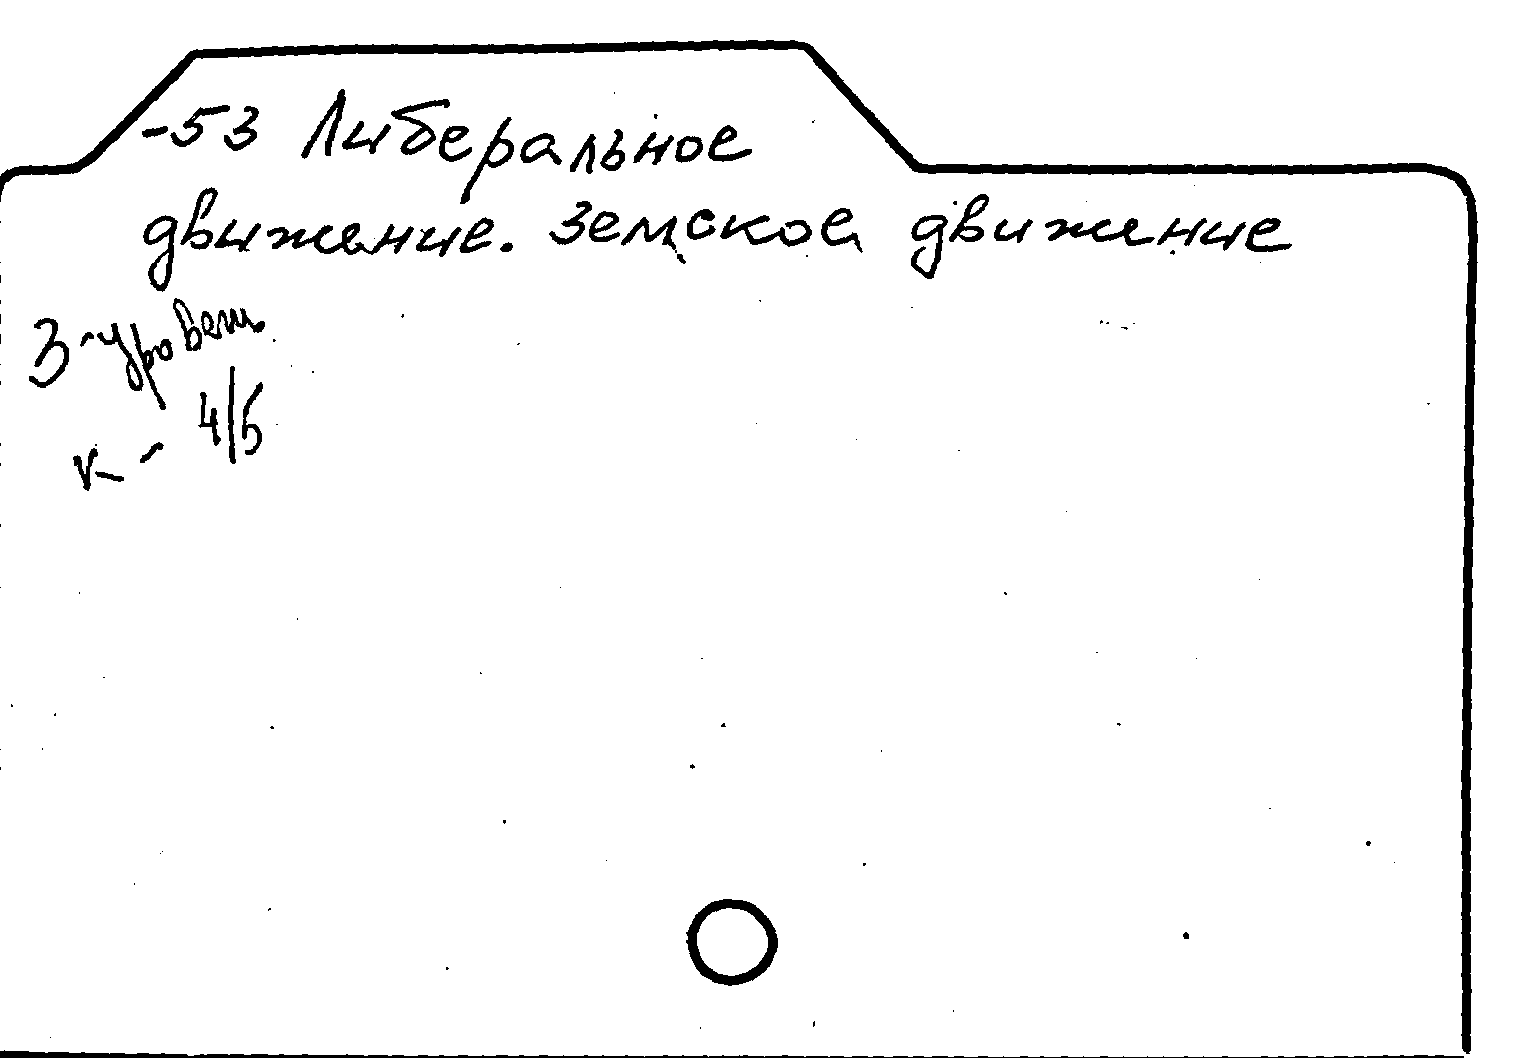 -53 Либеральное
движение. Земское движение
3-уровень
к - 4/5